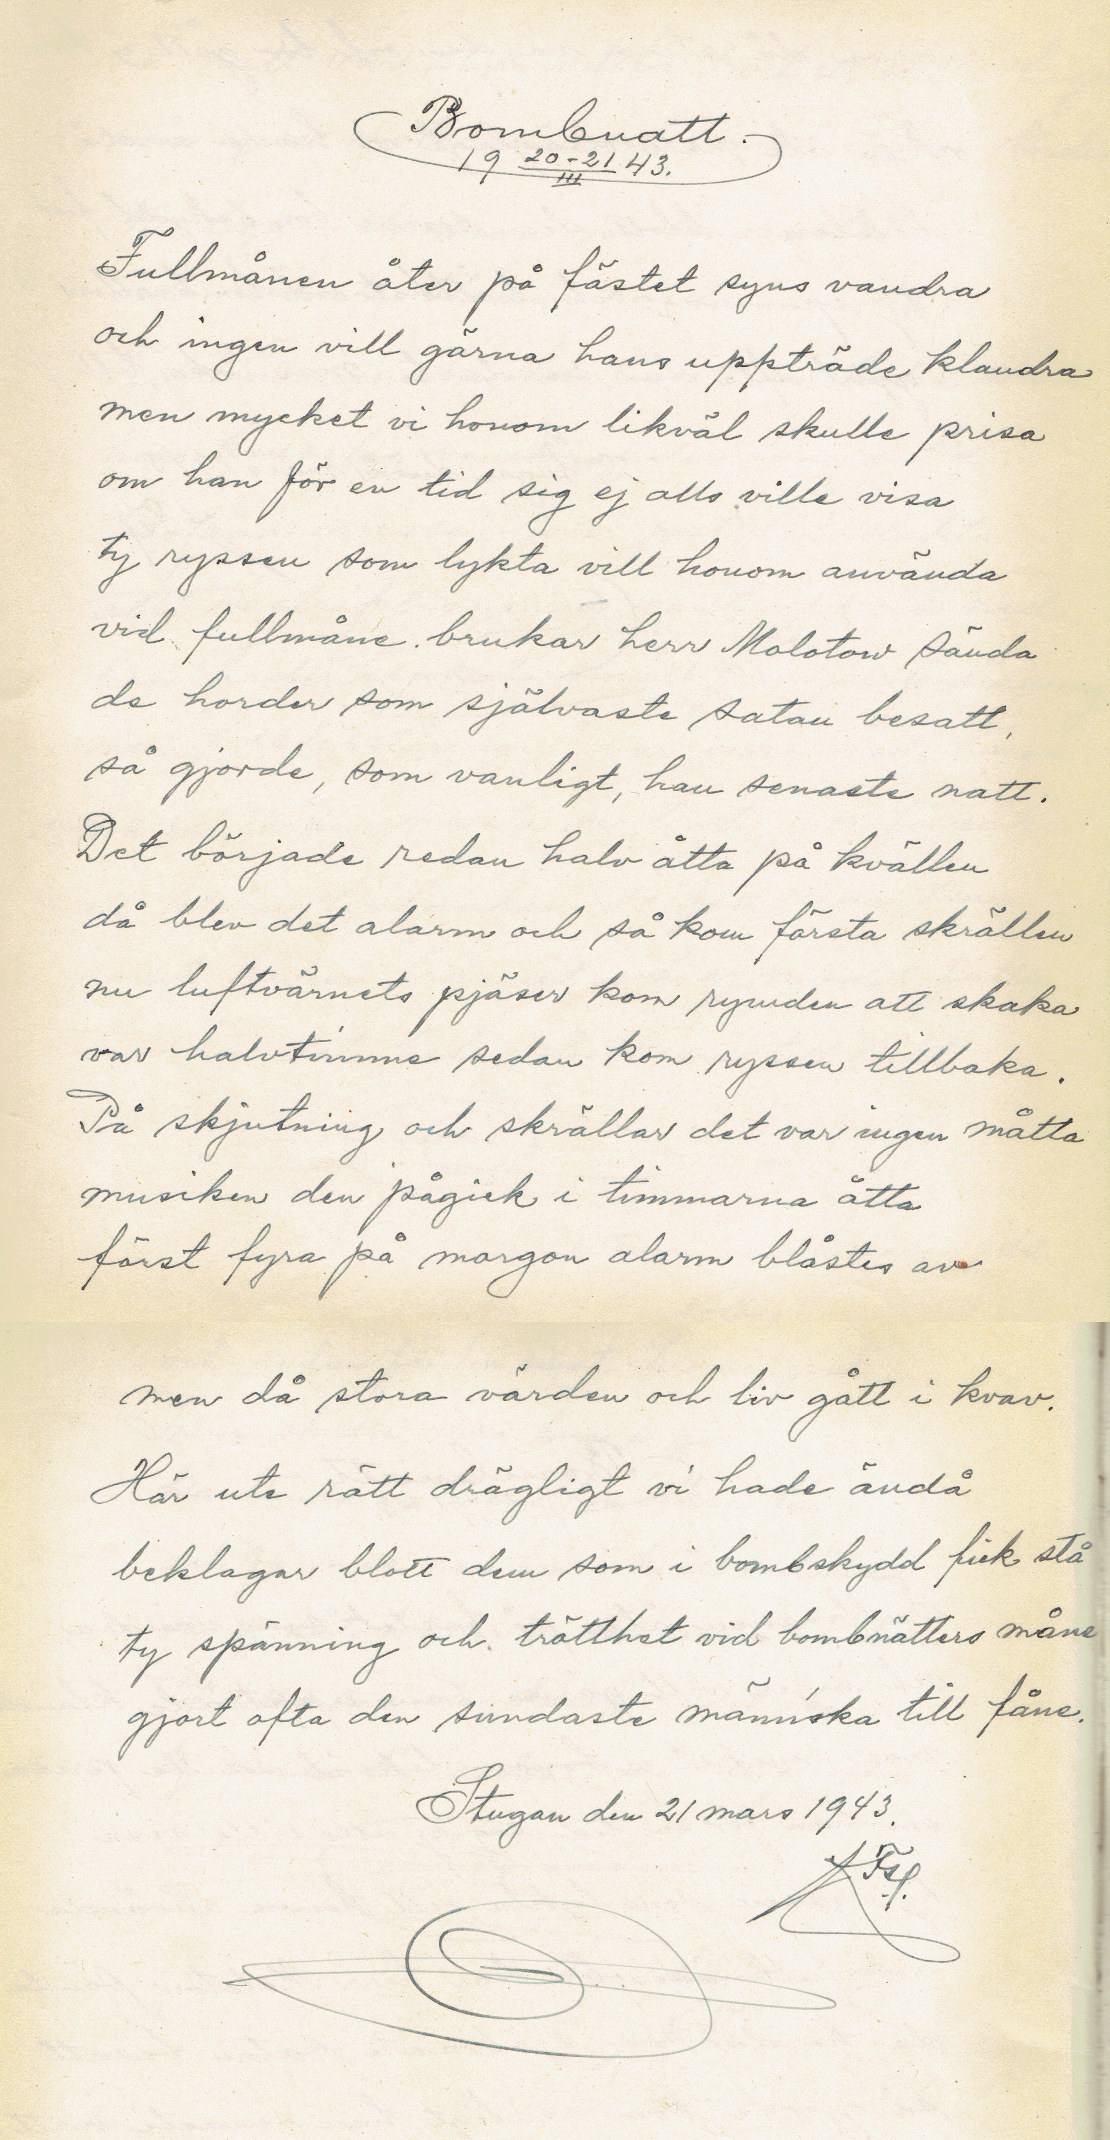 Bombnatt.
19 20-21/III 43.
Fullmånen åter på fästet syns vandra
och ingen vill gärna hans uppträde klandra
men mycket vi honom likväl skulle prisa
om han för en tid sig ej alls ville visa
ty ryssen som lykta vill honom använda
vid fullmåne brukar herr Molotow sända
de horder som självaste satan besatt,
så gjorde, som vanligt, han senaste natt.
Det började redan halv åtta på kvällen
då blev det alarm och så kom första skrällen
nu luftvärnets pjäser kom rymden att skaka
var halvtimme sedan kom ryssen tillbaka.
På skjutning och skrällar det var ingen måtta
musiken den pågick i timmarna åtta
först fyra på morgon alarm blåstes av
men då stora värden och liv gått i kvav.
Här ute rätt drägligt vi hade ändå
beklagar blott dem som i bombskydd fick stå
ty spänning och trötthet vid bombnätters måne
gjort ofta den sundaste människa till fåne.
Stugan den 21 mars 1943.